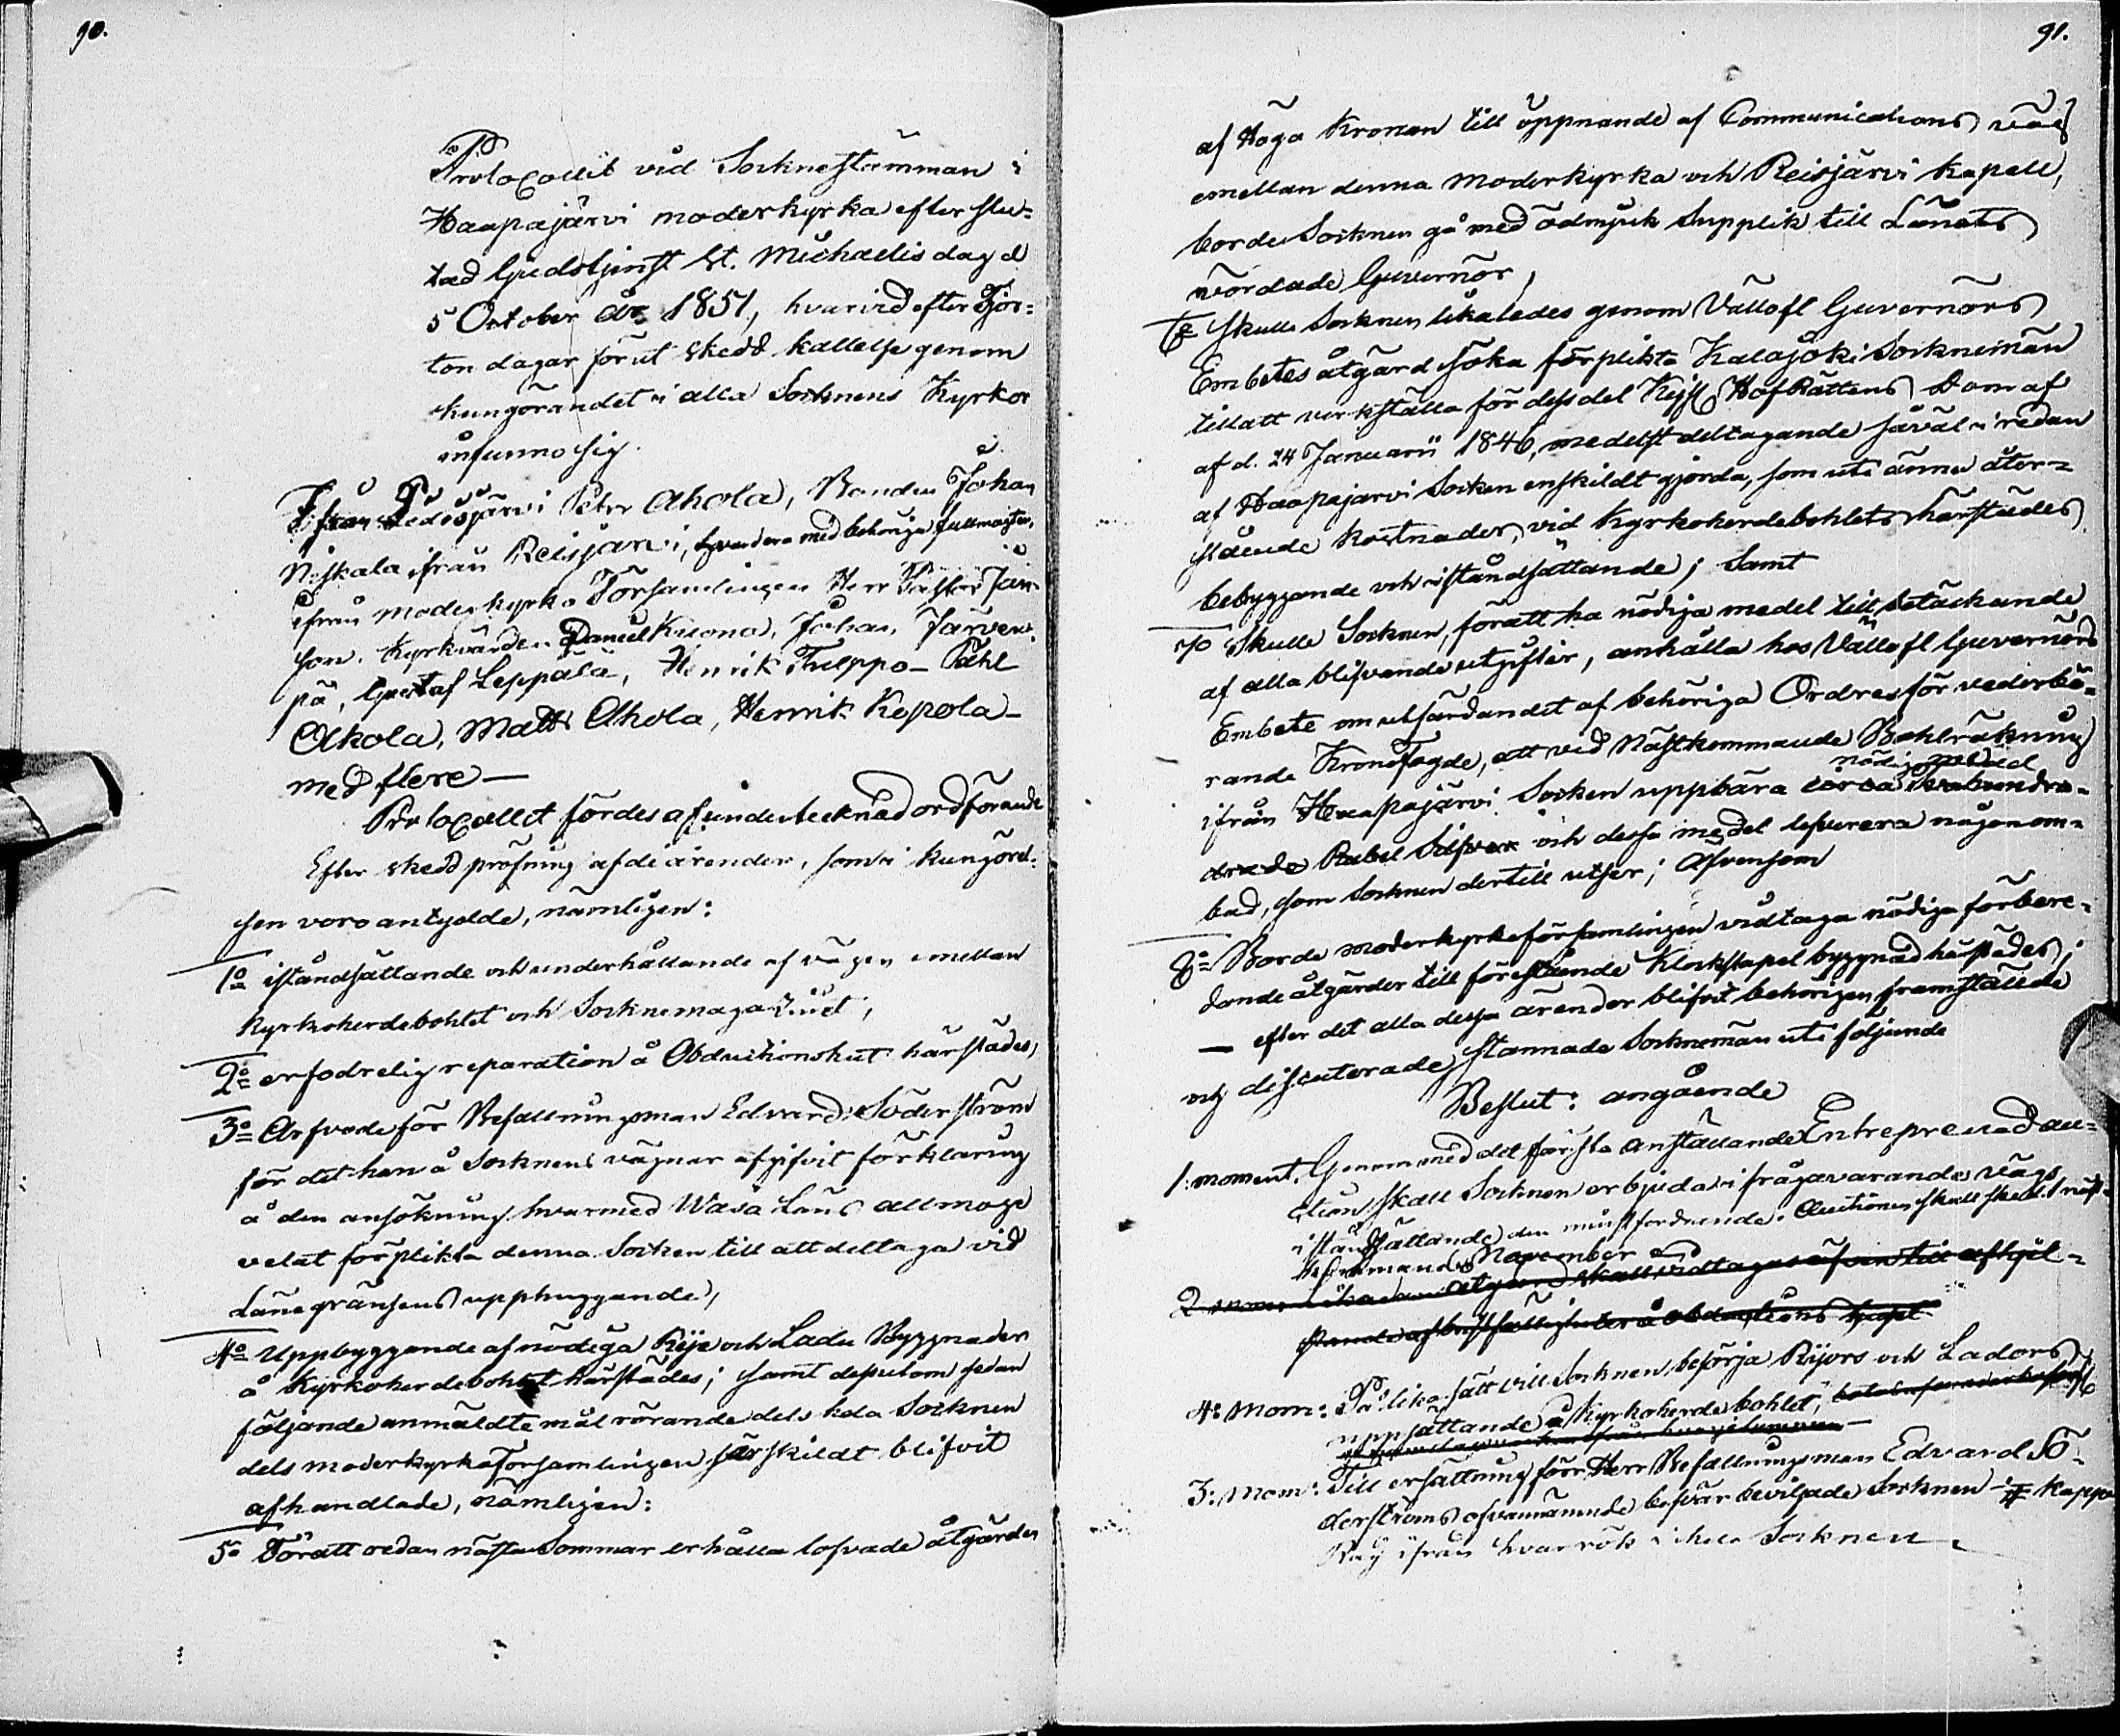 90.
Protocollet vid Sockneståmman i
Haapajärvi moderkyrka efter slu-
tad Gudstjenst St. Michaelis dag d
5 October år 1851, hvarvid efter Fjor-
ton dagar förut skedd kallelse genom
kungörandet i alla Socknens Kyrkor
infunno sig.
Ifrån Pidisjärvi Petter Ahola, Bonden Johan
Niskala ifrån Reisjärvi, hvardera med behöriga fullmagter,
ifrån moderkyrko Församlingen Herr Pastor
son. Kyrkvärden Daniel Kuona, Johan Järven-
pä, Gustaf Leppälä, Henrik Filppo- Påhl
Akola, Matts Ahola, Henrik Kopola-
med flere-
Protocollet fördes af undertecknad ordförande
Efter skedd pröfning af de ärenden, som i kungörel-
sen voro antydde, nämligen:
1o iståndsättande och underhållande af vägen emellan
Kyrkoherdebohlet och Socknemagazinet;
2o erfodrelig reparation å Obductionshut härstädes,
3o Arfvode för Befallningsman Edvard Söderström
för det han å Socknens vägnar afgifvit förklaring
å den ansökning hvarmed Wasa Läns allmoge
velat förplikta denna Socken till att deltaga vid
Länegränsens upphuggande,
4o Uppbyggande af nödiga Rije och Ladu Byggnader
å Kyrkoherdebohlet härstädes; samt dessutom sedan
följande anmäldte mål rörande dels hela Socknen
dels moderkyrkoförsamlingen särskildt blifvit
afhandlade, nämligen:
5o Föratt redan nästa Sommar erhålla lofvade åtgärder
91.
af Höga Kronan till öppnande af Communications väg
emellan denna Moderkyrka och Reisjärvi Kapell,
borde Socknen gå med ödmjuk Supplik till Länets
vördade Guvernör,
6o Skulle Socknen likaledes genom Vällofl Guvernörs
Embetes åtgärd söka förplikta Kalajoki Sockneman
till att verkställa för dess del Kejsl HofRättens Dom af
af d. 24 Januarii 1846, medelst deltagande såväl i redan
af Haapajarvi Socken enskildt gjorda, som uti ännu åter-
stående kostnader, vid Kyrkoherdebohlets härstädes
bebyggande och iståndsättande; Samt
7o Skulle Socknen, föratt ha nödiga medel till betäckande
af alla blifvande utgifter, anhålla hos Vällofl Guvernörs
Embete om utfärdandet af behöriga Ordres för vederbö-
rande KronoFogde, att vid Nästkommande Bohlräkning
nödiga medel
ifrån Haapajärvi Socken uppbära circa
Rubel Silfver och dessa medel lefverera någon om-
bud, som Socknen dertill utser; Äfvensom
8o Borde moderkyrkoförsamlingen vidtaga nödiga förbere-
dande åtgärder till förestående Klockstapel byggnad härstädes;
— efter det alla dessa ärender blifvit behörigen framställde
och discuterade, stannade Socknemän uti följande
Beslut: angående
1: moment. Genom med det första anställande Entreprenad au-
ction skall Socknen erbjuda ifrågavarande vägs
iståndsättande den minstfordrande. Auctionen skall ske d. 1 näst-
kommande November
2 mom: Likadan åtgärd skall vidtagas äfven till afhjel-
pande af bristfälligheter å obductions huset
4: Mom: På lika sätt vill Socknen besörja Rijors och Ladors
uppsättande å Kyrkoherdebohlet,
3: Mom: Till ersättning för Herr Befallningsman Edvard Sö-
derströms ofvannämnde besvär beviljade Socknen Kappe
Råg ifrån hvar rök i hela Socknen